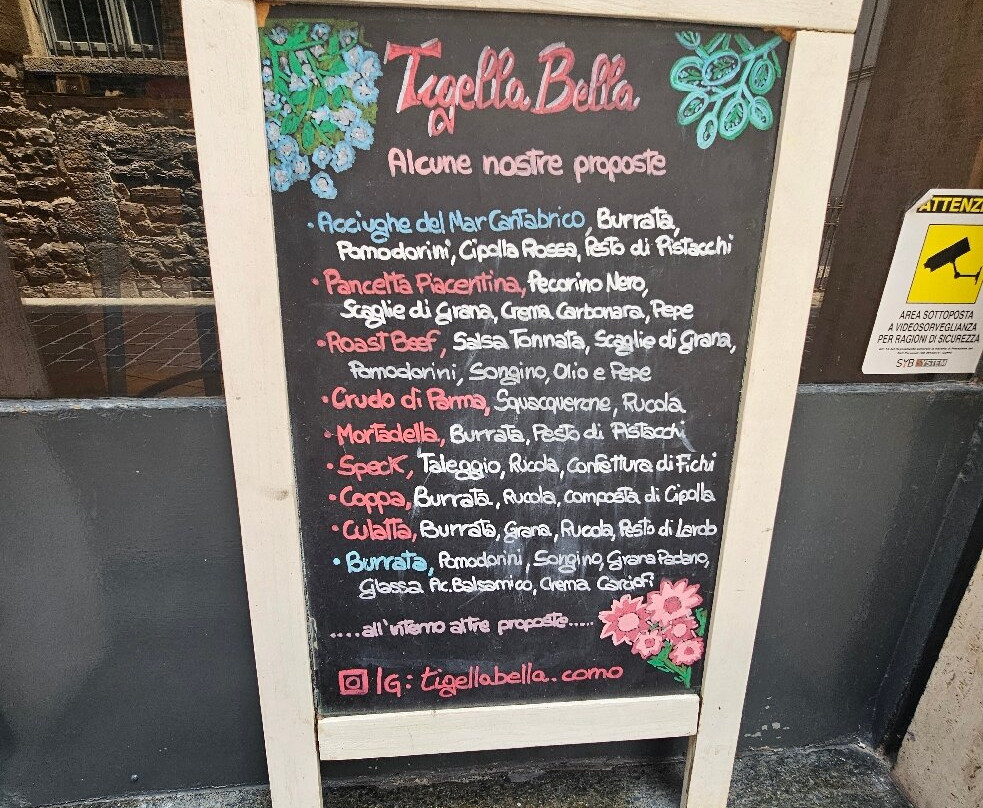 Tigella Bella
Alcune nostre proposte
• Acciughe del Mar Cantabrico, Burrata,
Pomodorini, Cipolla Rossa, Pesto di Pistacchi
• Pancetta Piacentina, Pecorino Nero,
Scaglie di Grana, Crema Carbonara, Pepe
• Roast Beef, Salsa Tonnata, Scaglie di Grana,
Pomodorini, Songino, Olio e Pepe
• Crudo di Parma, Squacquerone, Rucola
• Mortadella, Burrata, Pesto di Pistacchi
• Speck, Taleggio, Rucola, Confettura di Fichi
• Coppa, Burrata, Rucola, Composta di Cipolla
• Culatta, Burrata, Grana, Rucola, Pesto di Lardo
• Burrata, Pomodorini, Songino, Grana Padano,
Glassa Ac. Balsamico, Crema Carciofi
....all'interno altre proposte.....
IG: tigellabella.como
ATTENZI
AREA SOTTOPOSTA
A VIDEOSORVEGLIANZA
PER RAGIONI DI SICUREZZA
SYB SYSTEM